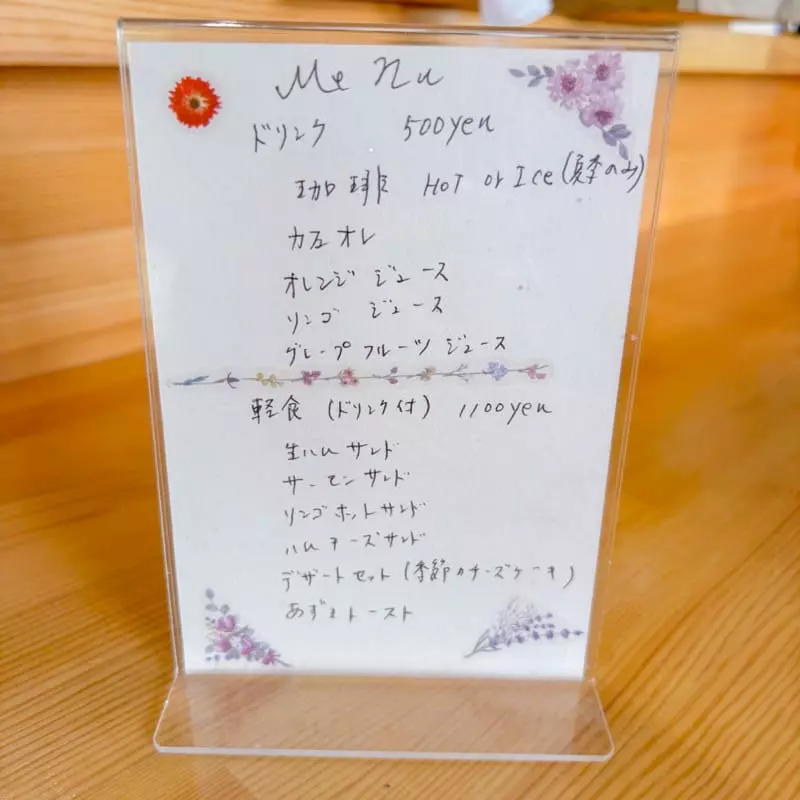 Me nu
ドリンク 500yen
珈琲 HOT or Ice (夏季のみ)
カフェオレ
オレンジ ジュース
リンゴ ジュース
グレープフルーツ ジュース
軽食 (ドリンク付) 1100yen
生ハムサンド
サーモンサンド
リンゴホットサンド
ハムチーズサンド
デザートセット (季節のチーズケーキ)
あずきトースト